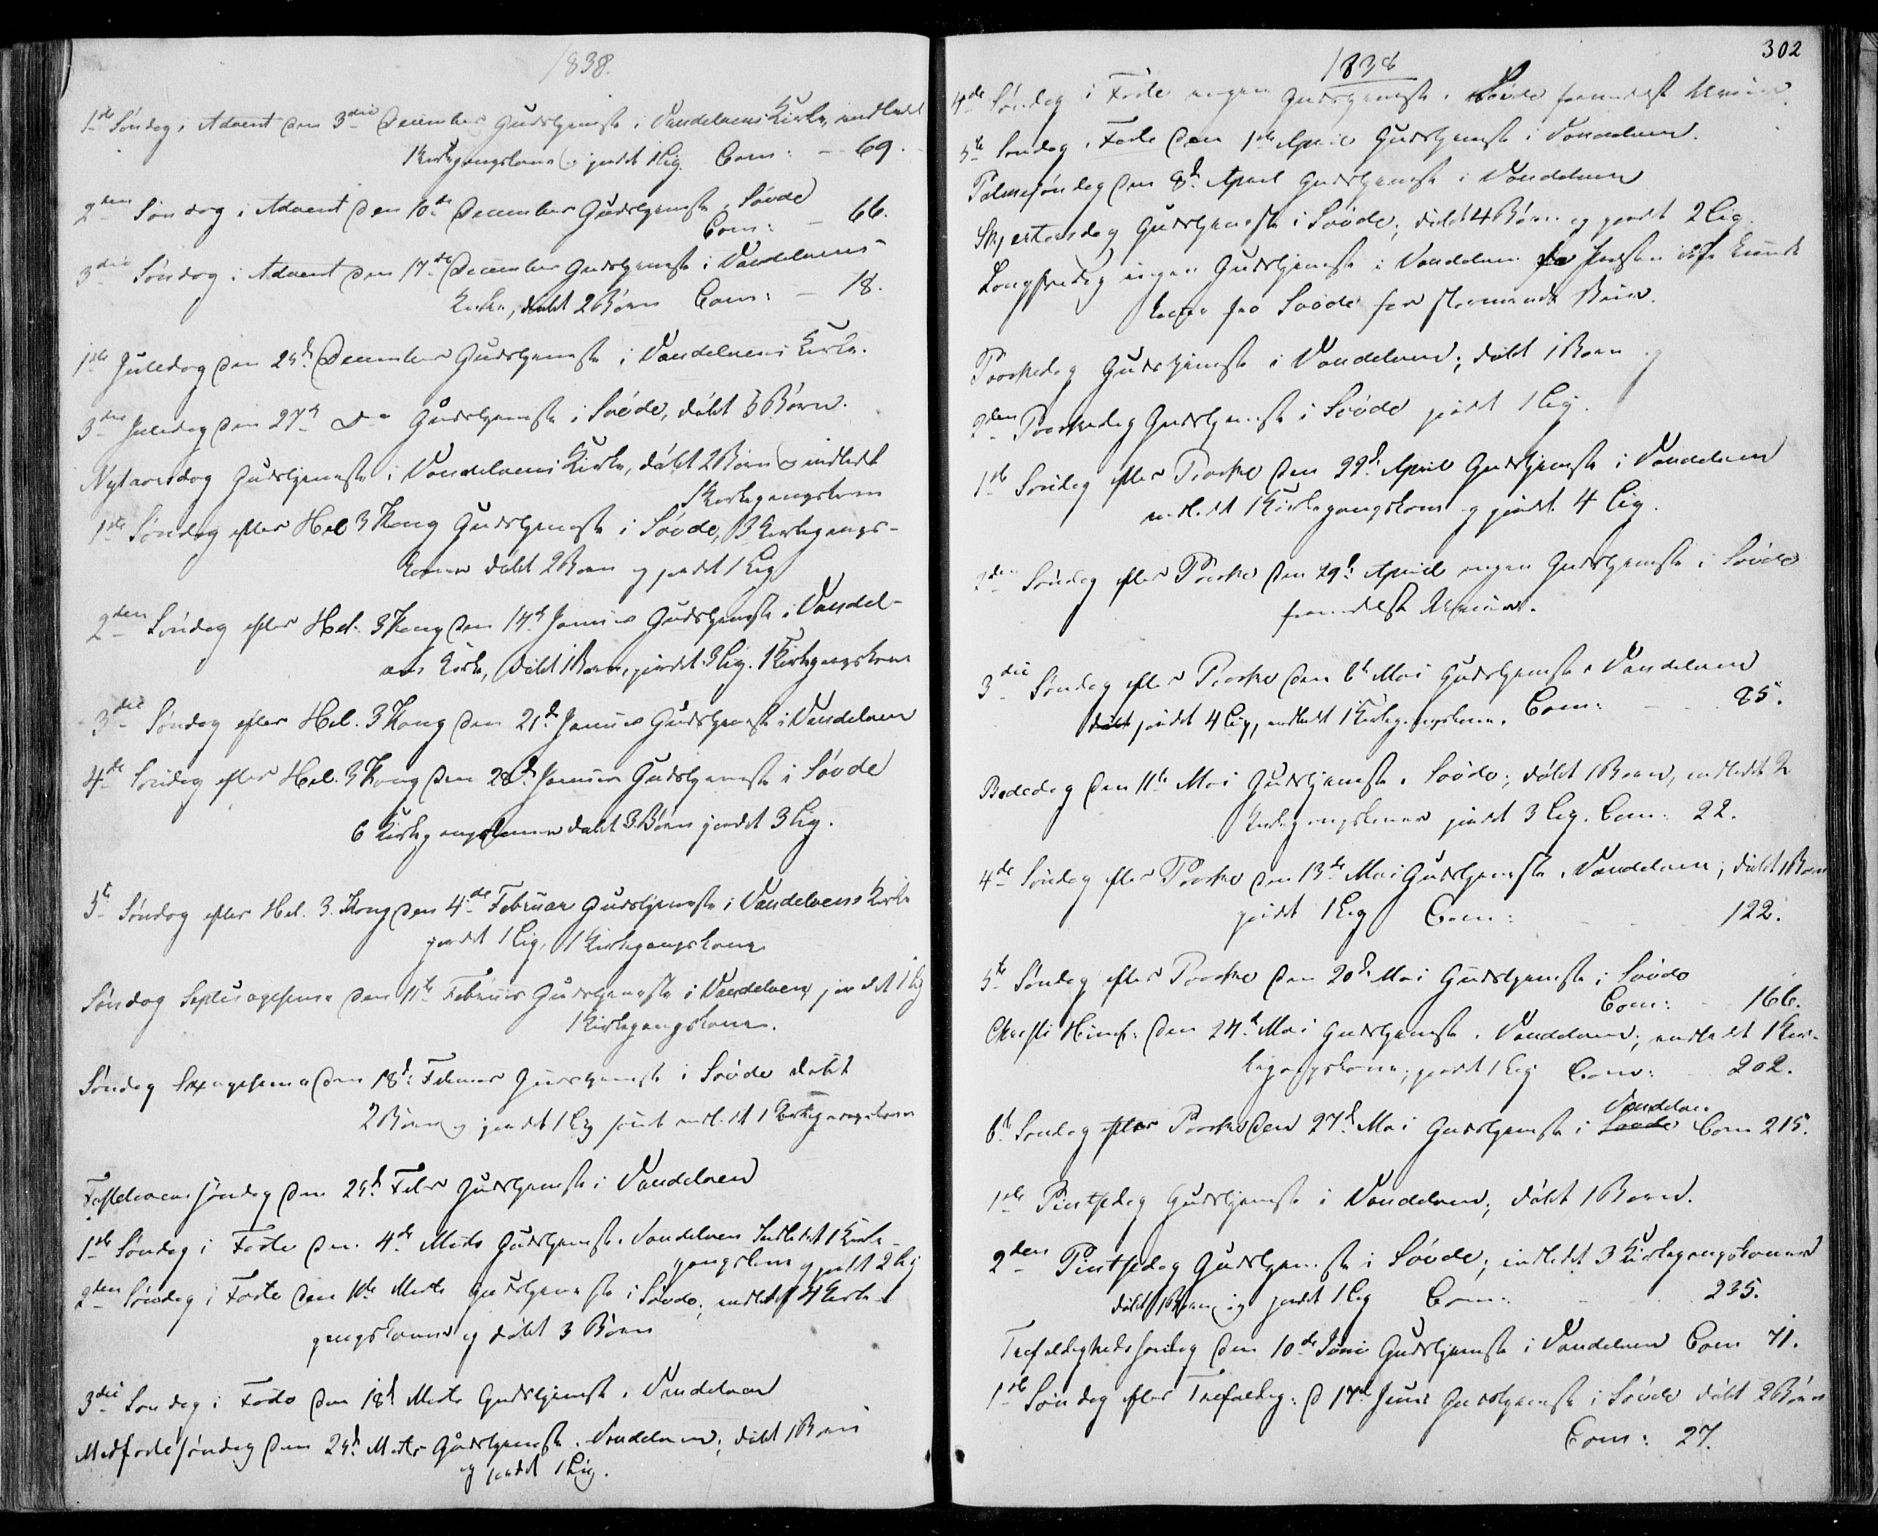 1838.
1ste Søndag i Advent den 3die December Gudstjeneste i Vandelvens Kirke, indledt
1 Kirkegangskone og jordet 1 Lig. Com: – 69.
2den Søndag i Advent den 10de December Gudstjeneste i Søvde
Com: – 66.
3die Søndag i Advent den 17de December Gudstjeneste i Vandelvens
Kirke, døbt 2 Børn Com: – 18.
1ste Juledag den 25d December Gudstjeneste i Vandelvens Kirke.
3die Juledag den 27d Do Gudstjeneste i Søvde, døbt 3 Børn.
Nytaarsdag Gudstjeneste i Vandelvens Kirke, døbt 2 Børn og indledt
1 Kirkegangskone
1ste Søndag efter Hel 3 Kong Gudstjeneste i Søvde, 3 Kirkegangs-
koner døbt 2 Børn og jordet 1 Lig
2den Søndag efter Hel. 3 Kong den 14d Januar Gudstjeneste i Vandel-
vens Kirke, døbt 1 Barn, jordet 3 Lig. 1 Kirkegangskone
3die Søndag efter Hel. 3 Kong den 21d Januar Gudstjeneste i Vandelven
4de Søndag efter Hel. 3 Kong den 28d Januar Gudstjeneste i Søvde
6 Kirkegangskoner døbt 3 Børn jordet 3 Lig.
5te Søndag efter Hel. 3. Kong den 4de Februar Gudstjeneste i Vandelvens Kirke
jordet 1 Lig, 1 Kirkegangskone
Søndag Septuagesima den 11te Februar Gudstjeneste i Vandelven, jordet 1 Lig
1 Kirkegangskone.
Søndag Sexagesima den 18d: Februar Gudstjeneste i Søvde døbt
2 Børn og jordet 1 Lig samt indledt 1 Kirkegangskone
Fastelavens søndag den 25d Febr Gudstjeneste i Vandelven
1ste Søndag i Faste den 4de Marts Gudstjeneste i Vandelven Indledet 1 Kirke-
gangskone og jordet 2 Lig
2den Søndag i Faste den 11te Marts Gudstjeneste i Søvde; indledt 4 Kirke-
gangskoner og døbt 3 Børn
3die Søndag i Faste den 18d Marts Gudstjeneste i Vandelven
Midfastesøndag den 25d Marts Gudstjeneste i Vandelven; døbt 1 Barn
og jordet 1 Lig.
1838
302
4de Søndag i Faste ingen Gudstjeneste i Søvde formedelst Uveir.
5te Søndag i Faste den 1ste April Gudstjeneste i Vandelven.
Palmesøndag den 8d April Gudstjeneste i Vandelven
Skjertorsdag Gudstjeneste i Søvde; døbt 4 Børn og jordet 2 Lig.
Langfredag ingen Gudstjeneste i Vandelven da Præsten ikke kunde
komme fra Søvde for stormende Veir.
Paaskedag Gudstjeneste i Vandelven; døbt 1 Barn
2den Paaskedag Gudstjeneste i Søvde jordet 1 Lig.
1ste Søndag efter Paaske den 22d April Gudstjeneste i Vandelven
indledt 1 Kirkegangskone og jordet 4 Lig.
2den Søndag efter Paaske den 29d: April ingen Gudstjeneste i Søvde
formedelst Uveir.
3die Søndag efter Paaske den 6te Mai Gudstjeneste i Vandelven
døbt jordet 4 Lig, indledt 1 Kirkegangskone. Com: – – 85.
Bededag den 11te Mai Gudstjeneste i Søvde; døbt 1 Barn, indledt 2
Kirkegangskoner jordet 3 Lig. Com: 22.
4de Søndag efter Paaske den 13de Mai Gudstjeneste i Vandelven; døbt 1 Barn
jordet 1 Lig Com: 122.
5te Søndag efter Paaske den 20d Mai Gudstjeneste i Søvde
Com: 166.
Christi Himf: den 24d Mai Gudstjeneste i Vandelven; indledt 1 Kir-
kegangskone; jordet 1 Lig Com: 202.
6te Søndag efter Paaske den 27d Mai Gudstjeneste i Søvde Vandelven Com 215.
1ste Pintsedag Gudstjeneste i Vandelven; døbt 1 Barn.
2den Pintsedag Gudstjeneste i Søvde; indledt 3 Kirkegangskoner
døbt 1 Barn og jordet 1 Lig Com: 235.
Trefoldighedssøndag den 10de Juni Gudstjeneste i Vandelven Com 71.
1ste Søndag efter Trefoldig: d 17de Juni Gudstjeneste i Søvde døbt 2 Børn
Com: 27.